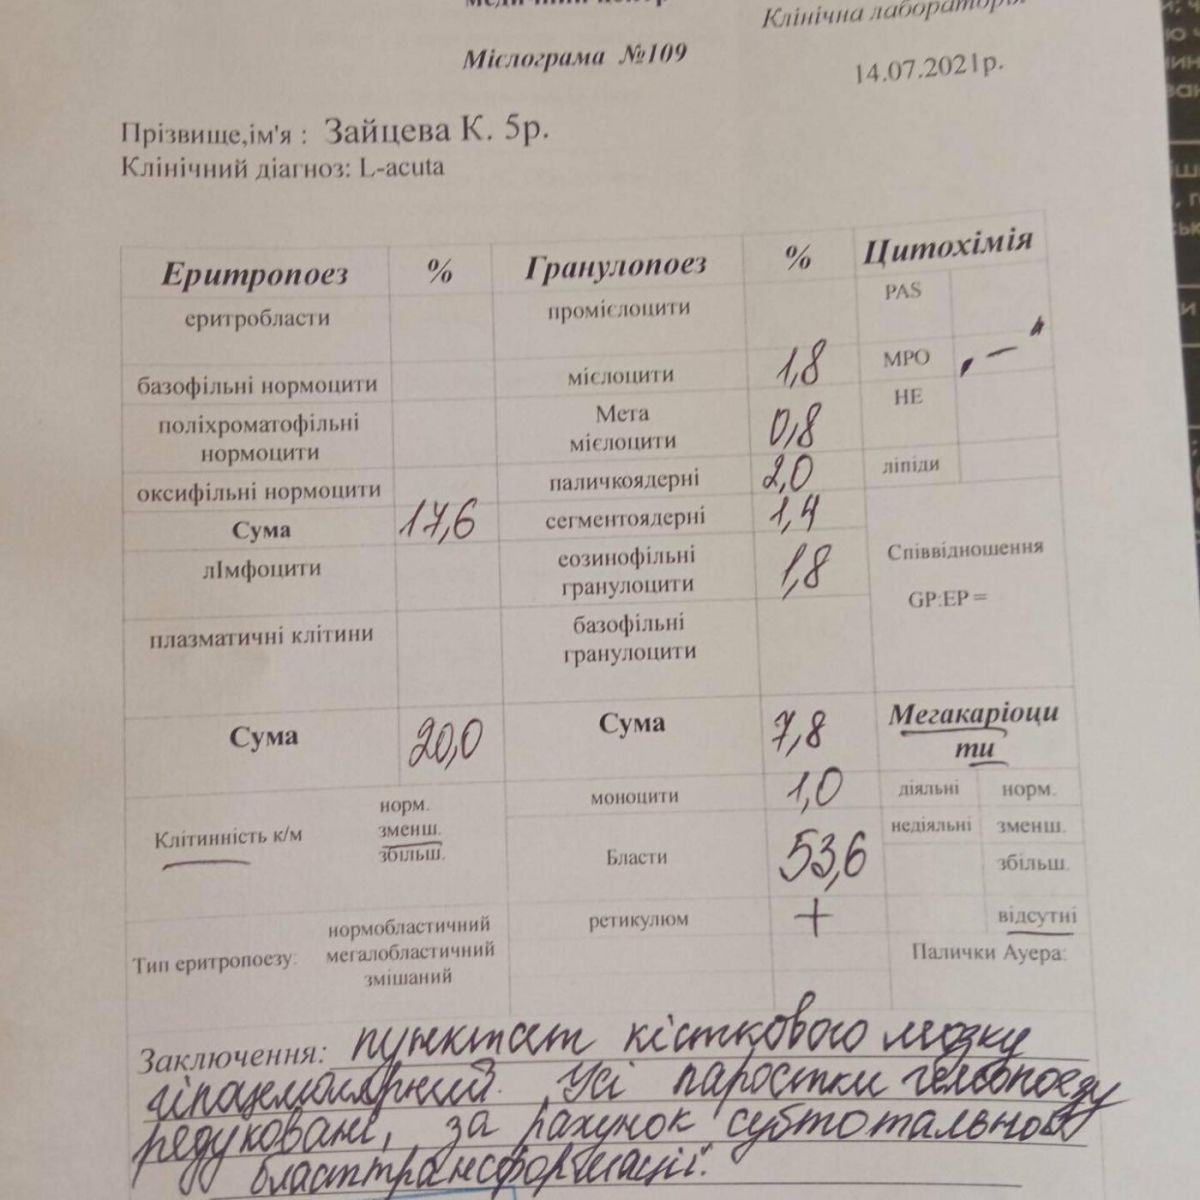 медичний центр
Клінічна лабораторія
Мієлограма №109
14.07.2021р.
Прізвище,ім'я : Зайцева К. 5р.
Клінічний діагноз: L-acuta
Еритропоез % Гранулопоез % Цитохімія
еритробласти промієлоцити PAS
базофільні нормоцити мієлоцити 1,8 МРО „ — "
поліхроматофільні нормоцити Мета мієлоцити 0,8 НЕ
оксифільні нормоцити паличкоядерні 2,0 ліпіди
Сума 17,6 сегментоядерні 1,4
лІмфоцити еозинофільні гранулоцити 1,8 Співвідношення
GP:EP =
плазматичні клітини базофільні гранулоцити
Сума 20,0 Сума 7,8 Мегакаріоци
ти
моноцити 1,0 діяльні норм.
Клітинність к/м норм.
зменш.
збільш.
Бласти 53,6 недіяльні зменш.
збільш.
ретикулюм + відсутні
Тип еритропоезу: нормобластичний
мегалобластичний
змішаний
Палички Ауера:
Заключення: пунктат кісткового мозку
гіпоцелюлярний. Усі паростки гемопоезу
редуковані, за рахунок субтотальної
бласттрансформації.